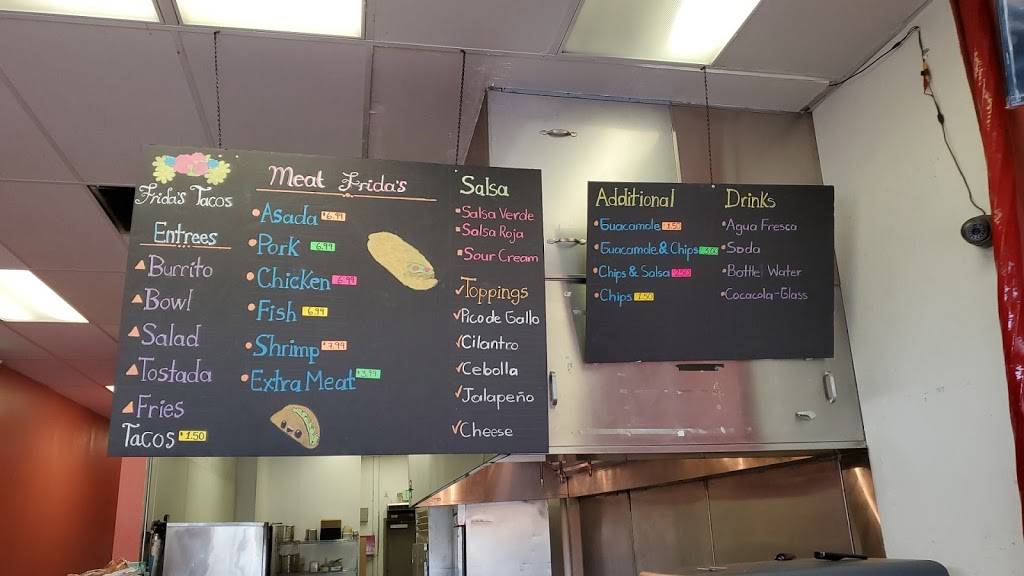 Frida's Tacos
Entrees
Burrito
Bowl
Salad
Tostada
Fries
Tacos $1.50
Meat Frida's
Asada $6.99
Pork 6.99
Chicken 6.99
Fish 6.99
Shrimp $7.99
Extra Meat $3.99
Salsa
Salsa Verde
Salsa Roja
Sour Cream
Toppings
Pico de Gallo
Cilantro
Cebolla
Jalapeño
Cheese
Additional
Guacamole 1.50
Guacamole & Chips
Chips & Salsa 2.50
Chips 1.50
Drinks
Agua Fresca
Soda
Bottel Water
Cocacola-Glass